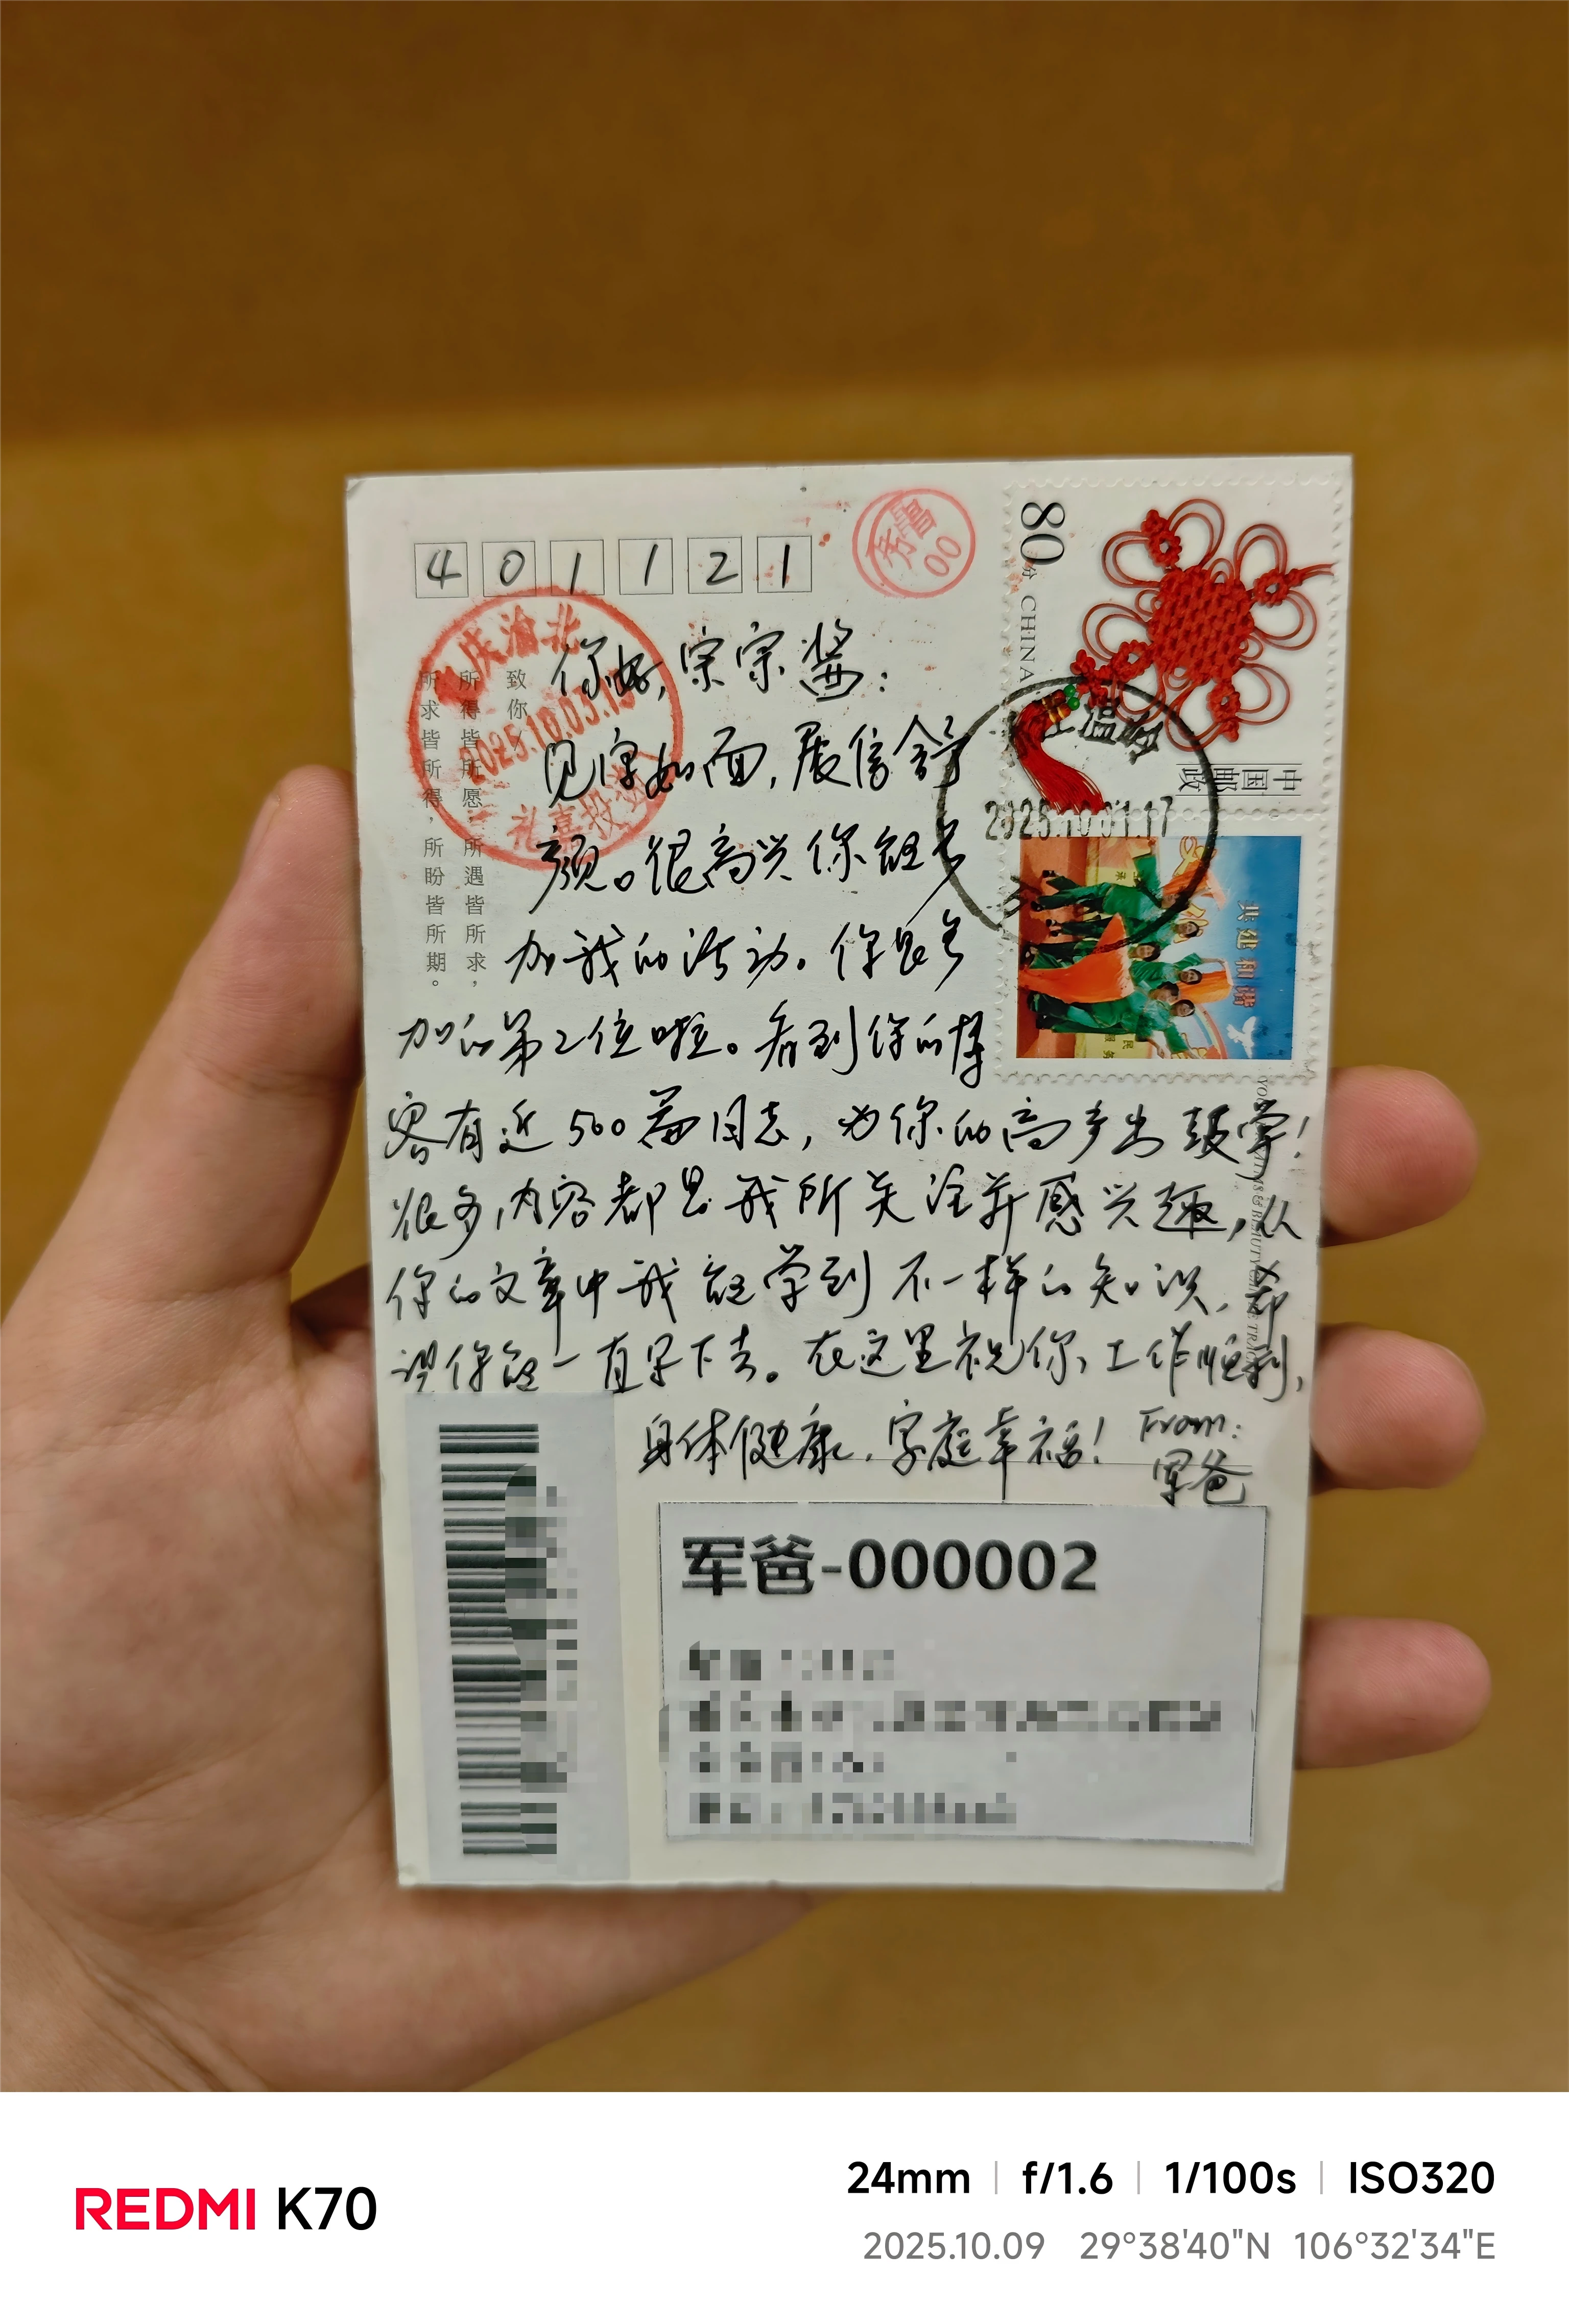 401121
80分 CHINA
中国邮政
2025.10.01.17
共建和谐
重庆渝北
2025.10.05.15
礼嘉投递
致你/
所得皆所愿,所遇皆所求,
所求皆所得,所盼皆所期。
你好,宗宗酱:
见字如面,展信舒
颜。很高兴你能参
加我的活动。你是参
加的第2位啦。看到你的博
客有近500篇日志,为你的高产出鼓掌!
很多内容都是我所关注并感兴趣,从
你的文章中我能学到不一样的知识,希
望你能一直写下去。在这里祝你,工作顺利,
身体健康,家庭幸福! From:
军爸
军爸-000002
REDMI K70
24mm | f/1.6 | 1/100s | ISO320
2025.10.09 29°38'40"N 106°32'34"E